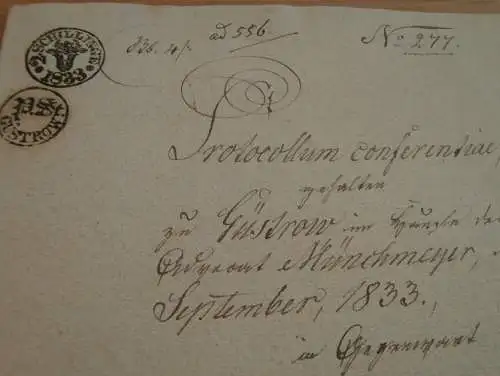 2 SCHILLINGE
1833
GÜSTROW
ad 556.
No 277.
Protocollum conferentiae,
gehalten
zu Güstrow im Hause des
Advocat Münchmeyer,
September, 1833.,
in Gegenwart